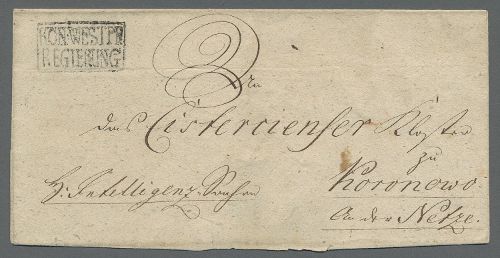 KÖN: WESTPR
REGIERUNG
An
das Cistercienser Kloster
zu
H: Intelligenz-Sachen
Koronowo
An der Netze.